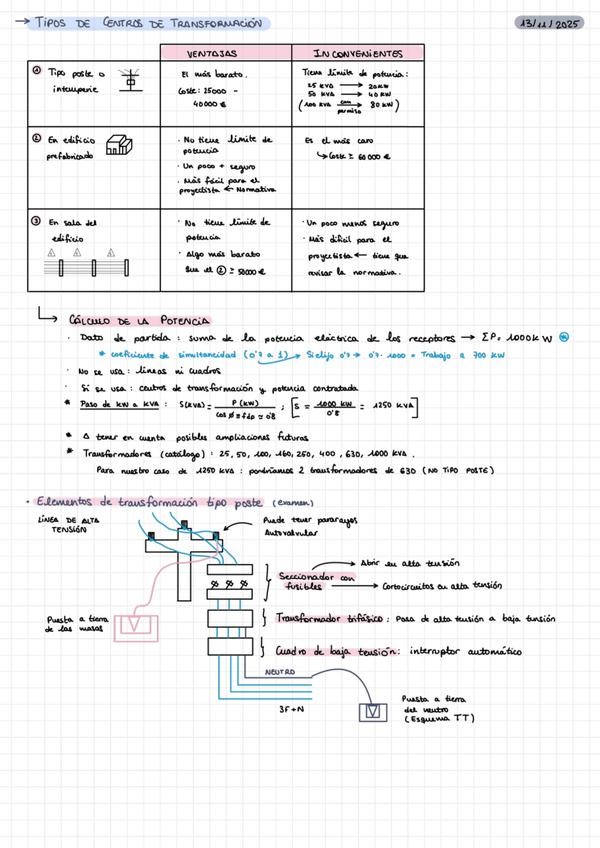 → TIPOS DE CENTROS DE TRANSFORMACIÓN
13/11/2025
VENTAJAS
INCONVENIENTES
① Tipo poste o
intemperie
El más barato.
Coste: 25000 -
40000 €
Tiene límite de potencia:
25 KVA → 20KW
50 KVA → 40 KW
(100 KVA con permiso → 80 KW)
② En edificio
prefabricado
· No tiene límite de
potencia
· Un poco + seguro
· Más fácil para el
proyectista ← Normativa
Es el más caro
↳ Coste ≥ 60000 €
③ En sala del
edificio
· No tiene límite de
potencia
· Algo más barato
que el ② ≥ 50000 €
· Un poco menos seguro
· Más difícil para el
proyectista ← tiene que
revisar la normativa.
CÁLCULO DE LA POTENCIA
· Dato de partida: suma de la potencia eléctrica de los receptores → ΣP = 1000KW *
* coeficiente de simultaneidad (0'7 a 1) → Si elijo 0'7 → 0'7 · 1000 = Trabajo a 700 KW
· No se usa: líneas ni cuadros
· Si se usa: centros de transformación y potencia contratada
* Paso de KW a KVA: S(KVA) = P (KW) / cos Ø = fdp ≃ 0'8 ; [S = 1000 KW / 0'8 = 1250 KVA]
* A tener en cuenta posibles ampliaciones futuras
* Transformadores (catálogo): 25, 50, 100, 160, 250, 400, 630, 1000 KVA.
Para nuestro caso de 1250 KVA: pondríamos 2 transformadores de 630 (NO TIPO POSTE)
· Elementos de transformación tipo poste (examen)
LÍNEA DE ALTA
TENSIÓN
Puede tener pararayos
Autovalvular
Seccionador con
fusibles
→ Abrir en alta tensión
→ Cortocircuitos en alta tensión
Puesta a tierra
de las masas
Transformador trifásico: Pasa de alta tensión a baja tensión
Cuadro de baja tensión: interruptor automático
NEUTRO
3F+N
Puesta a tierra
del neutro
(Esquema TT)